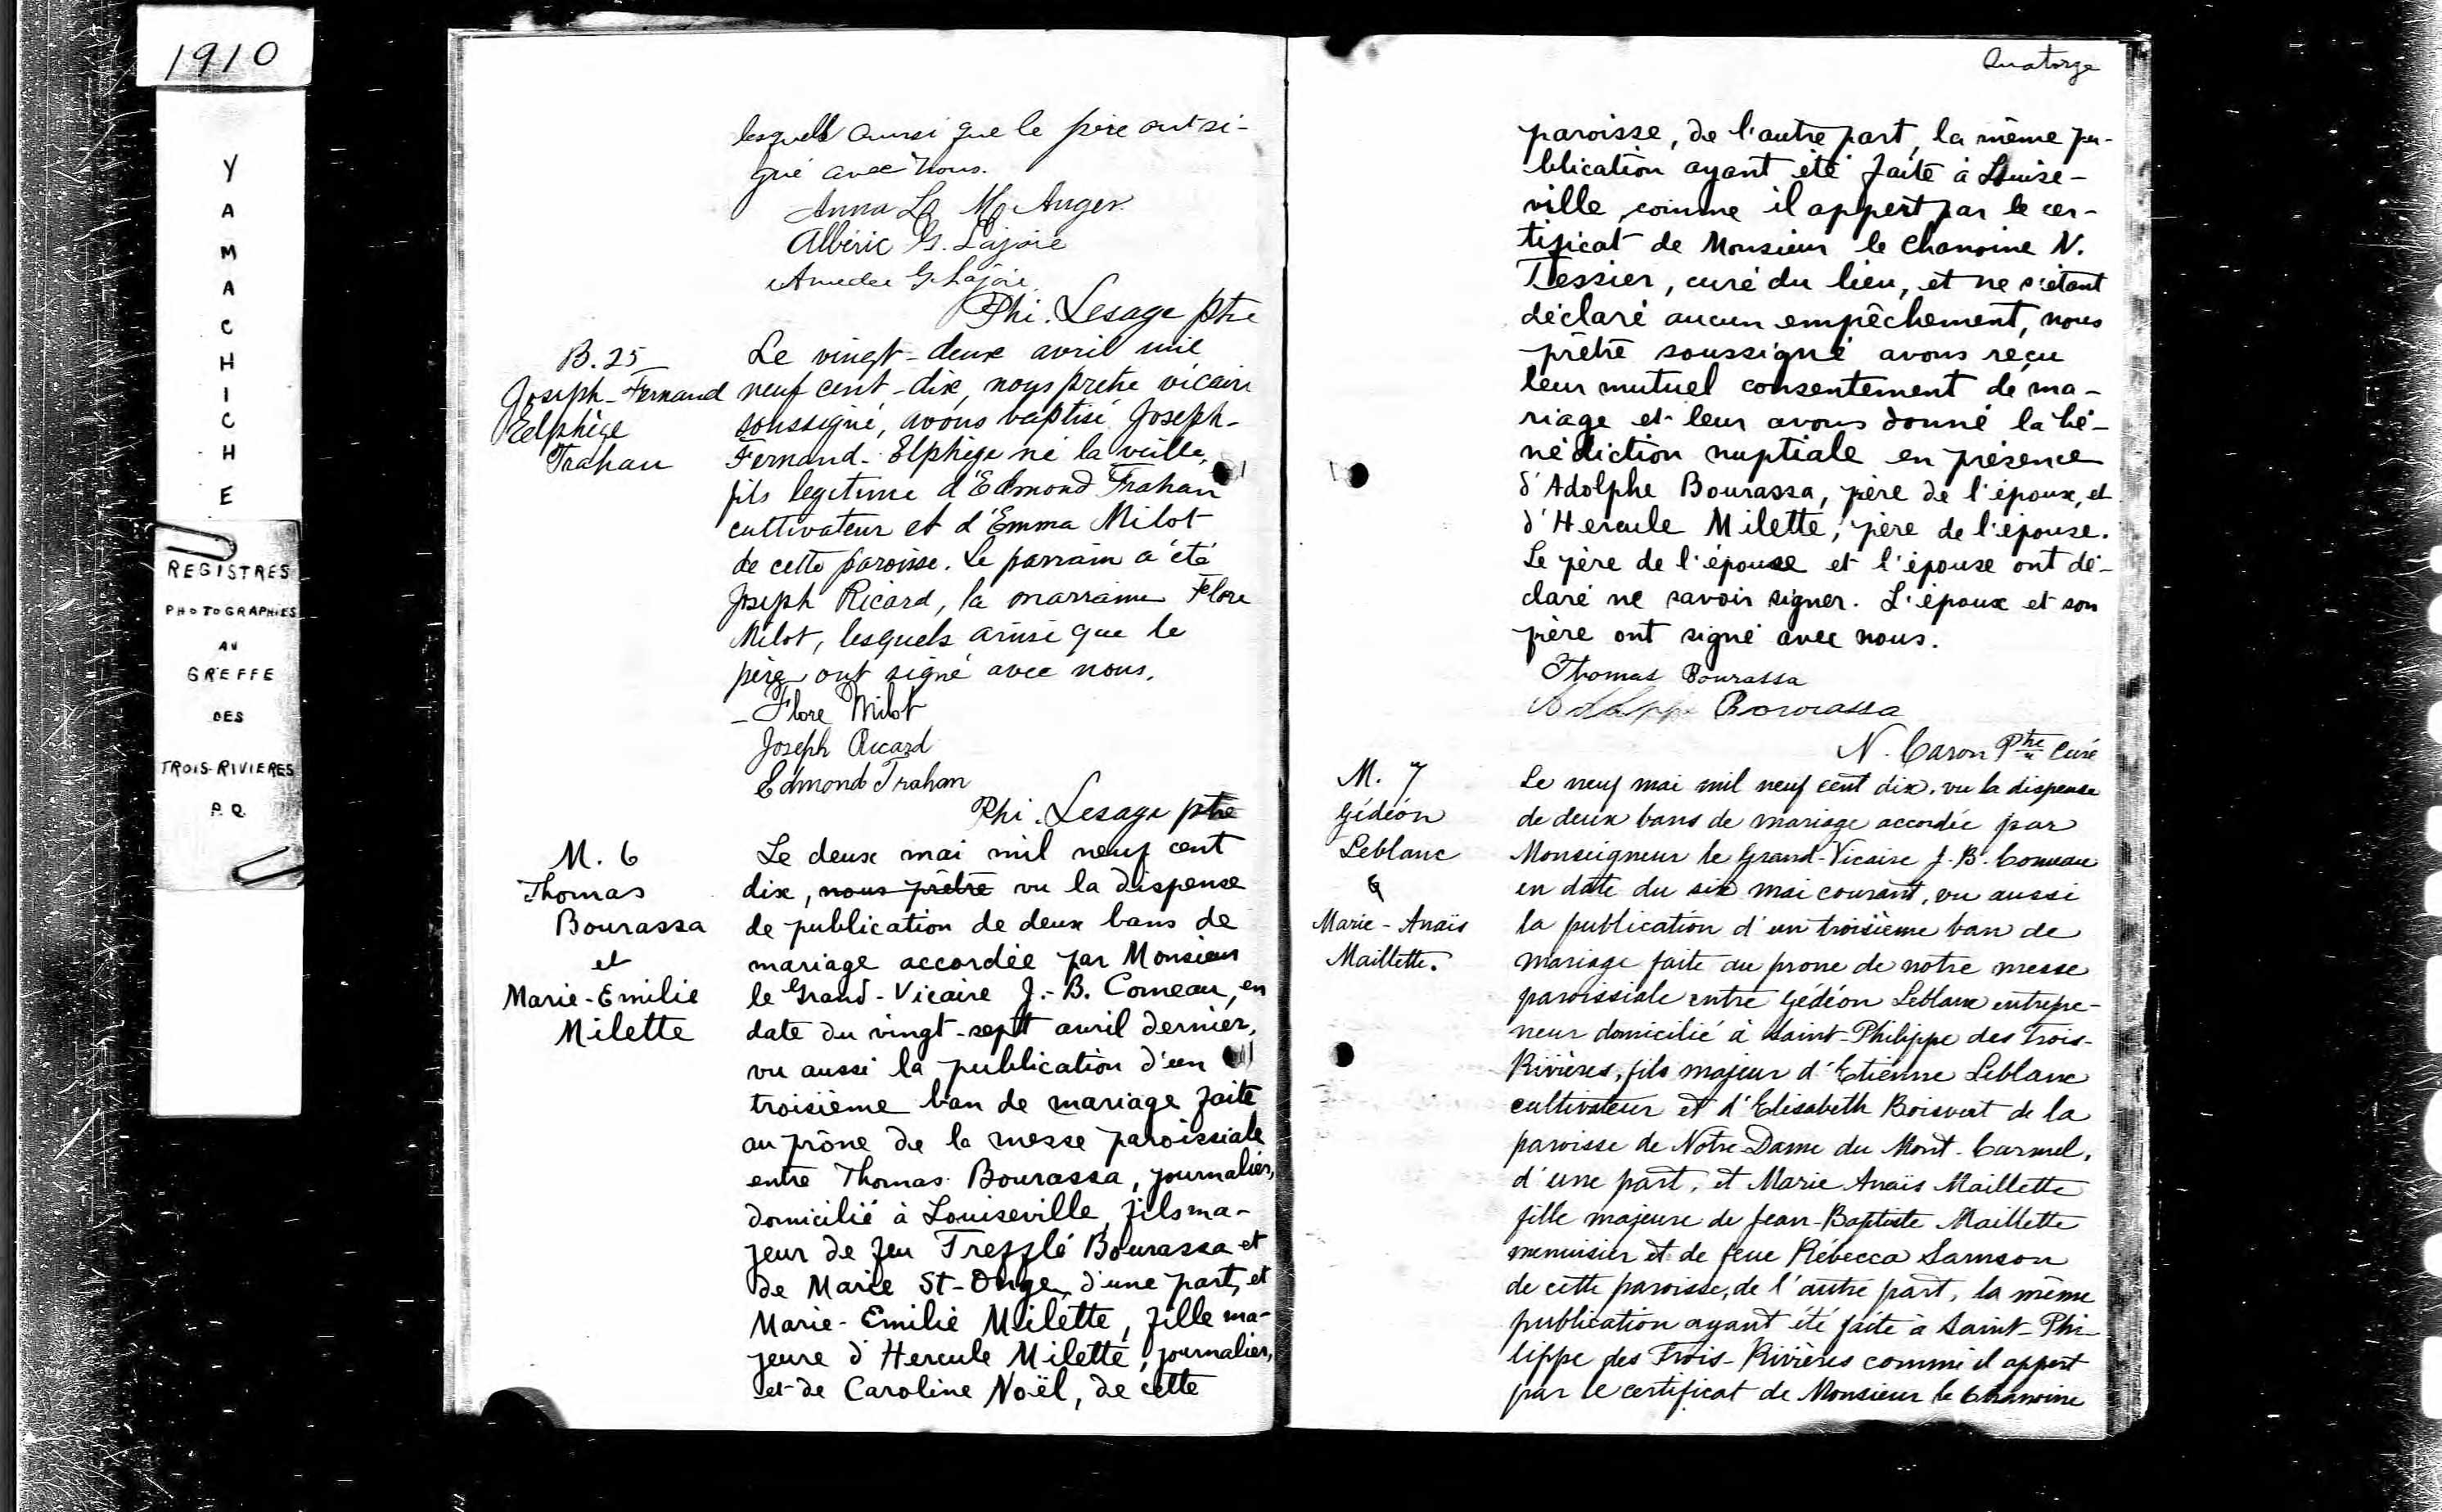 1910
YAMACHICHE
REGISTRES
PHOTOGRAPHIES
AU
GREFFE
DES
TROIS-RIVIERES
P.Q.
lesquels ainsi que le père ont si-
gné avec nous.
Anna L. M. Auger
Albéric G. Lajoie
Amedee G. Lajoie
Phi. Lesage ptre
B. 25
Joseph-Fernand
Elphège
Trahan
Le vingt-deux avril mil
neuf cent-dix, nous prêtre vicaire
soussigné, avons baptisé Joseph-
Fernand-Elphège né la veille,
fils légitime d'Edmond Trahan
cultivateur et d'Emma Milot
de cette paroisse. Le parrain a été
Joseph Ricard, la marraine Flore
Milot, lesquels ainsi que le
père ont signé avec nous.
Flore Milot
Joseph Ricard
Edmond Trahan
Phi. Lesage ptre
M. 6
Thomas
Bourassa
et
Marie-Emilie
Milette
Le deux mai mil neuf cent
dix, nous prêtre vu la dispense
de publication de deux bans de
mariage accordée par Monsieur
le Grand-Vicaire J.-B. Comeau, en
date du vingt-sept avril dernier,
vu aussi la publication d'un
troisième ban de mariage faite
au prône de la messe paroissiale
entre Thomas Bourassa, journalier,
domicilié à Louiseville, fils ma-
jeur de feu Trefflé Bourassa et
de Marie St-Onge, d'une part, et
Marie-Emilie Milette, fille ma-
jeure d'Hercule Milette, journalier,
et de Caroline Noël, de cette
Quatorze
paroisse, de l'autre part, la même pu-
blication ayant été faite à Louise-
ville, comme il appert par le cer-
tificat de Monsieur le Chanoine N.
Tessier, curé du lieu, et ne s'étant
déclaré aucun empêchement, nous
prêtre soussigné avons reçu
leur mutuel consentement de ma-
riage et leur avons donné la bé-
nédiction nuptiale en présence
d'Adolphe Bourassa, père de l'époux, et
d'Hercule Milette, père de l'épouse.
Le père de l'épouse et l'épouse ont dé-
claré ne savoir signer. L'époux et son
père ont signé avec nous.
Thomas Bourassa
Adolphe Bourassa
N. Caron Ptre Curé
M. 7
Gédéon
Leblanc
&
Marie-Anaïs
Maillette.
Le neuf mai mil neuf cent dix, vu la dispense
de deux bans de mariage accordée par
Monseigneur le Grand-Vicaire J.-B. Comeau
en date du six mai courant, vu aussi
la publication d'un troisième ban de
mariage faite au prone de notre messe
paroissiale entre Gédéon Leblanc entrepre-
neur domicilié à Saint-Philippe des Trois-
Rivières, fils majeur d'Etienne Leblanc
cultivateur et d'Elisabeth Boisvert de la
paroisse de Notre-Dame du Mont-Carmel,
d'une part, et Marie Anaïs Maillette
fille majeure de Jean-Baptiste Maillette
menuisier et de feue Rébecca Samson
de cette paroisse, de l'autre part, la même
publication ayant été faite à Saint-Phi-
lippe des Trois-Rivières comme il appert
par le certificat de Monsieur le Chanoine